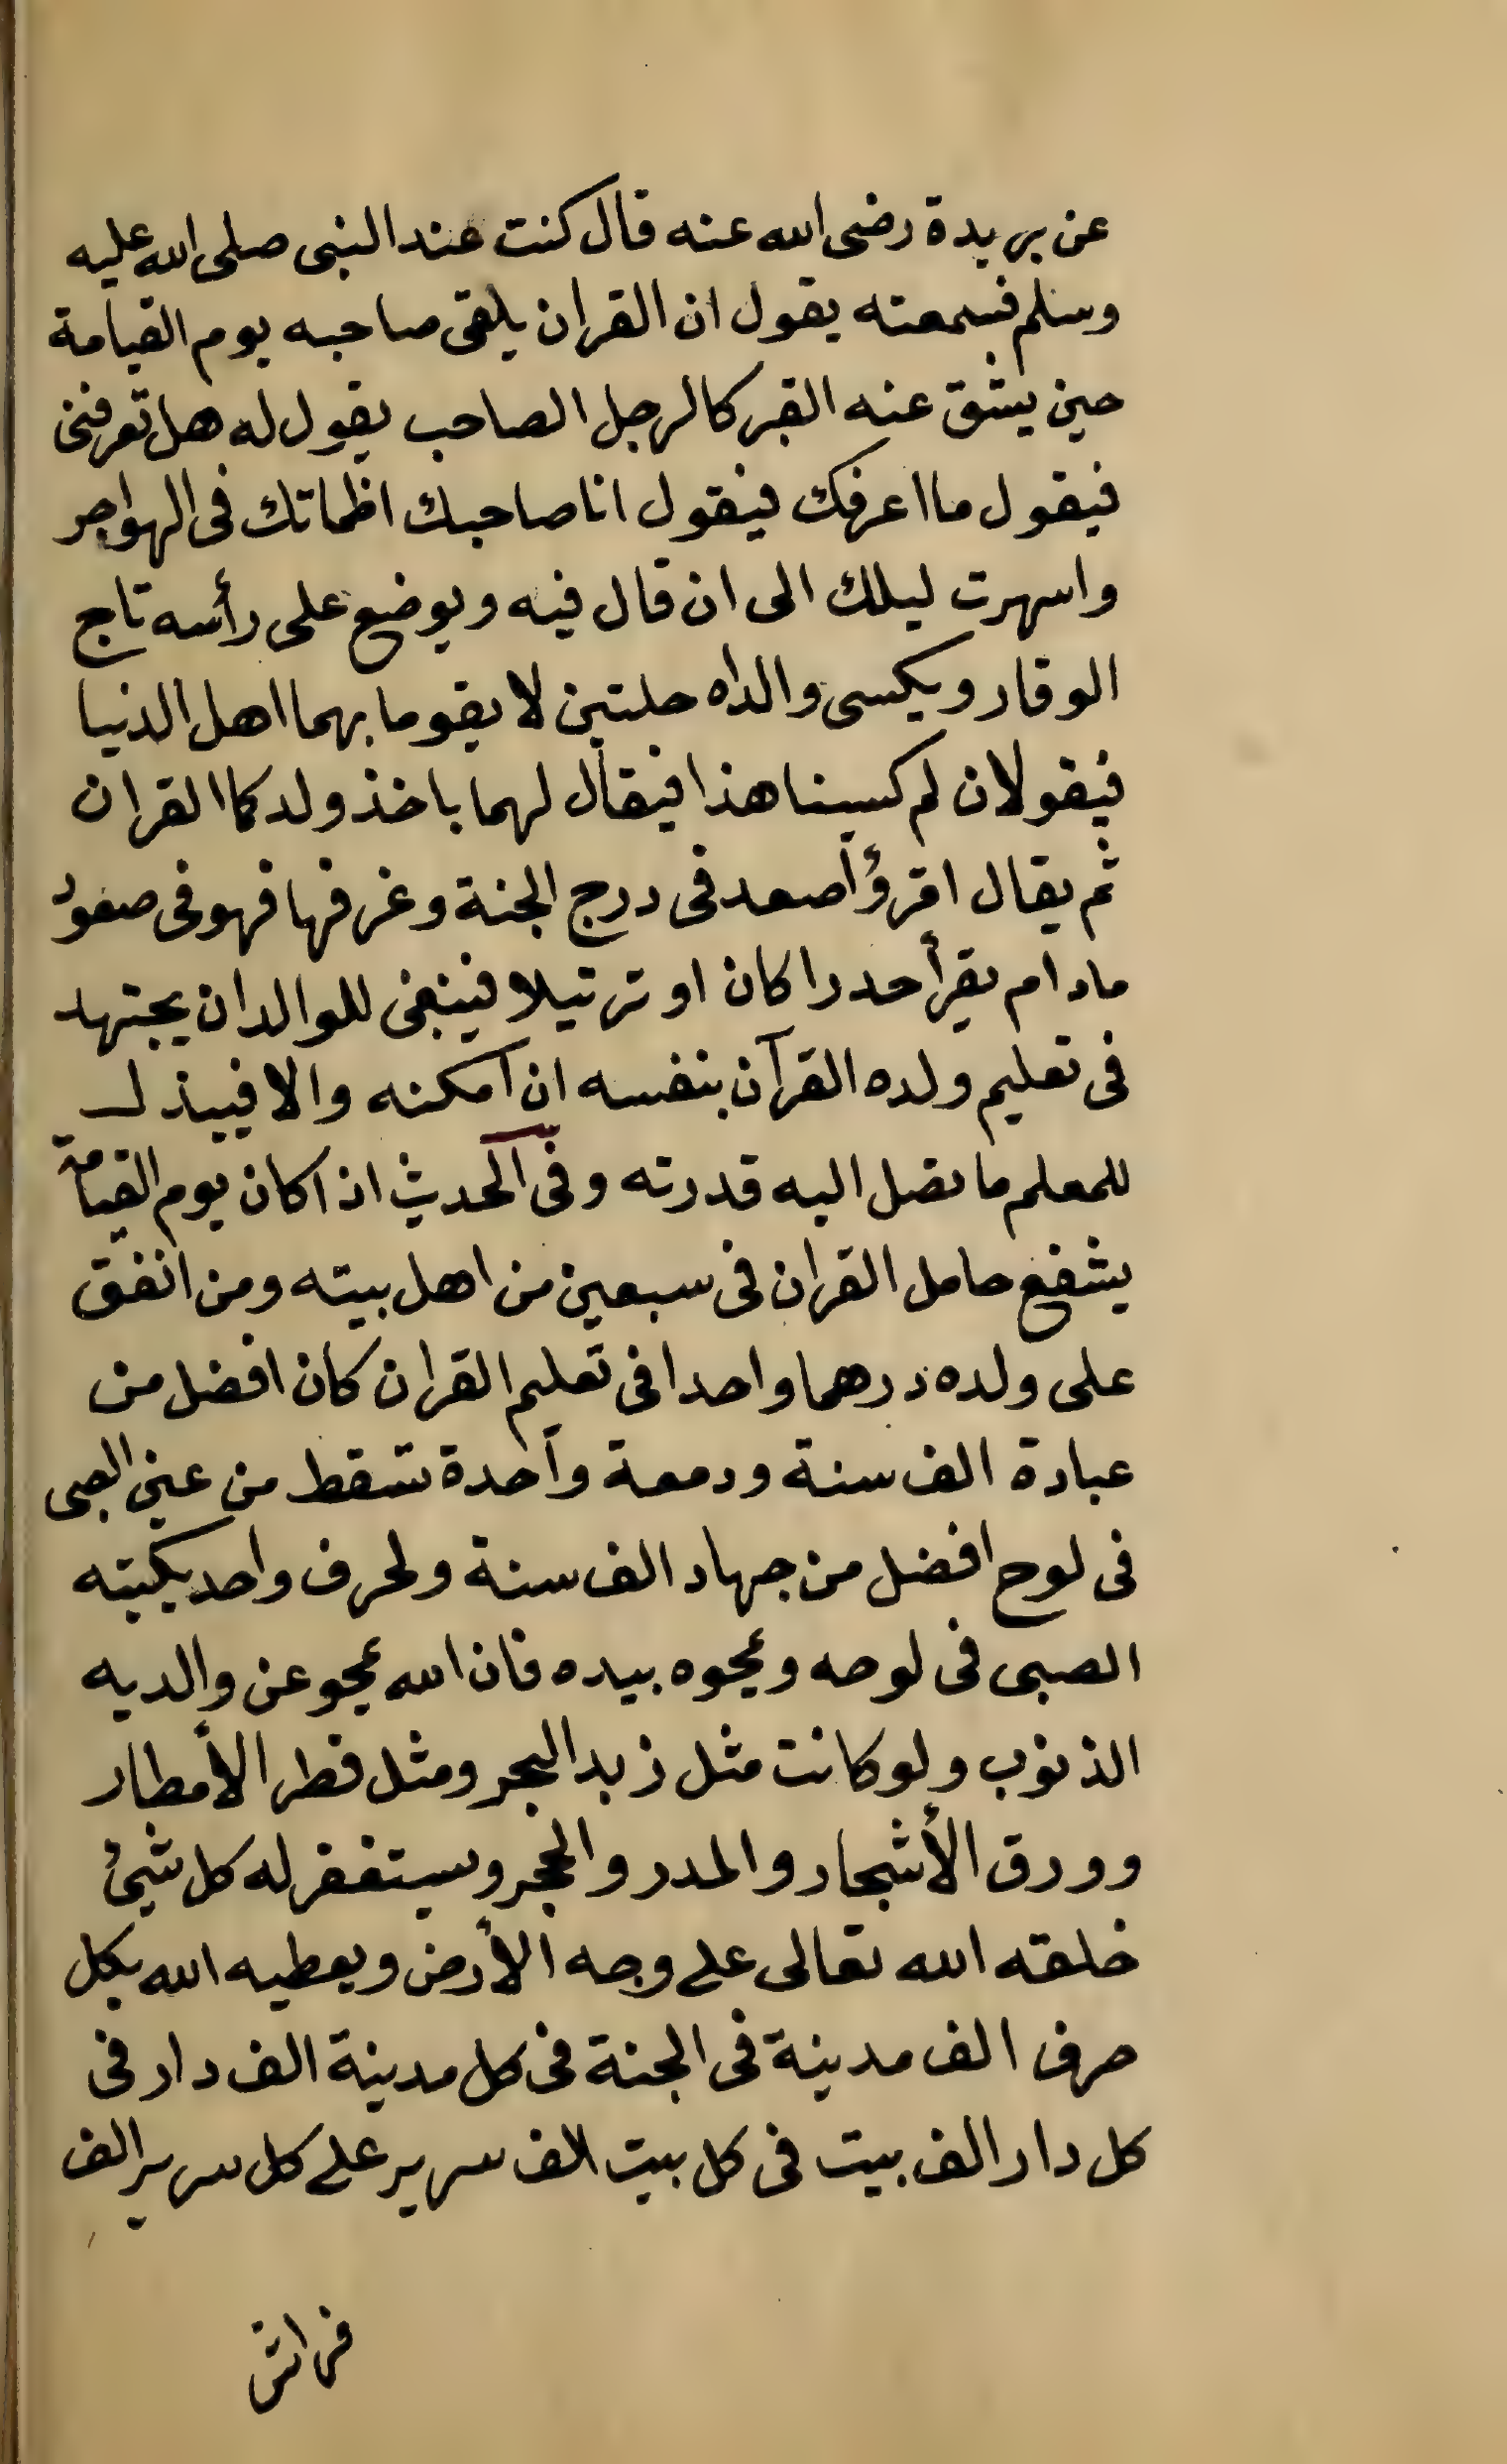 عن بريدة رضى الله عنه قال كنت عند النبى صلى الله عليه
وسلم فسمعته يقول ان القران يلقى صاحبه يوم القيامة
حين يشق عنه القبر كالرجل الصاحب يقول له هل تعرفنى
فيقول ما اعرفك فيقول انا صاحبك اظماتك فى الهواجر
واسهرت ليلك الى ان قال فيه ويوضع على رأسه تاج
الوقار ويكسى والداه حلتين لا يقوما بهما اهل الدنيا
فيقولان لم كسينا هذا فيقال لهما باخذ ولدكما القران
ثم يقال اقرؤ اصعد فى درج الجنة وغرفها فهو فى صعود
مادام يقرأ حدرا كان او ترتيلا فينبغى للوالد ان يجتهد
فى تعليم ولده القرآن بنفسه ان امكنه والا فيبذل
للمعلم ما تصل اليه قدرته وفى الحديث اذا كان يوم القيامة
يشفع حامل القران فى سبعين من اهل بيته ومن انفق
على ولده درهما واحدا فى تعليم القران كان افضل من
عبادة الف سنة ودمعة واحدة تسقط من عين الصبى
فى لوح افضل من جهاد الف سنة ولحرف واحد يكتبه
الصبى فى لوحه ويمحوه بيده فان الله يمحو عن والديه
الذنوب ولو كانت مثل زبد البحر ومثل قطر الأمطار
وورق الأشجار والمدر والحجر ويستغفر له كل شيئ
خلقه الله تعالى على وجه الأرض ويعطيه الله بكل
حرف الف مدينة فى الجنة فى كل مدينة الف دار فى
كل دار الف بيت فى كل بيت الف سرير على كل سرير الف
فراش